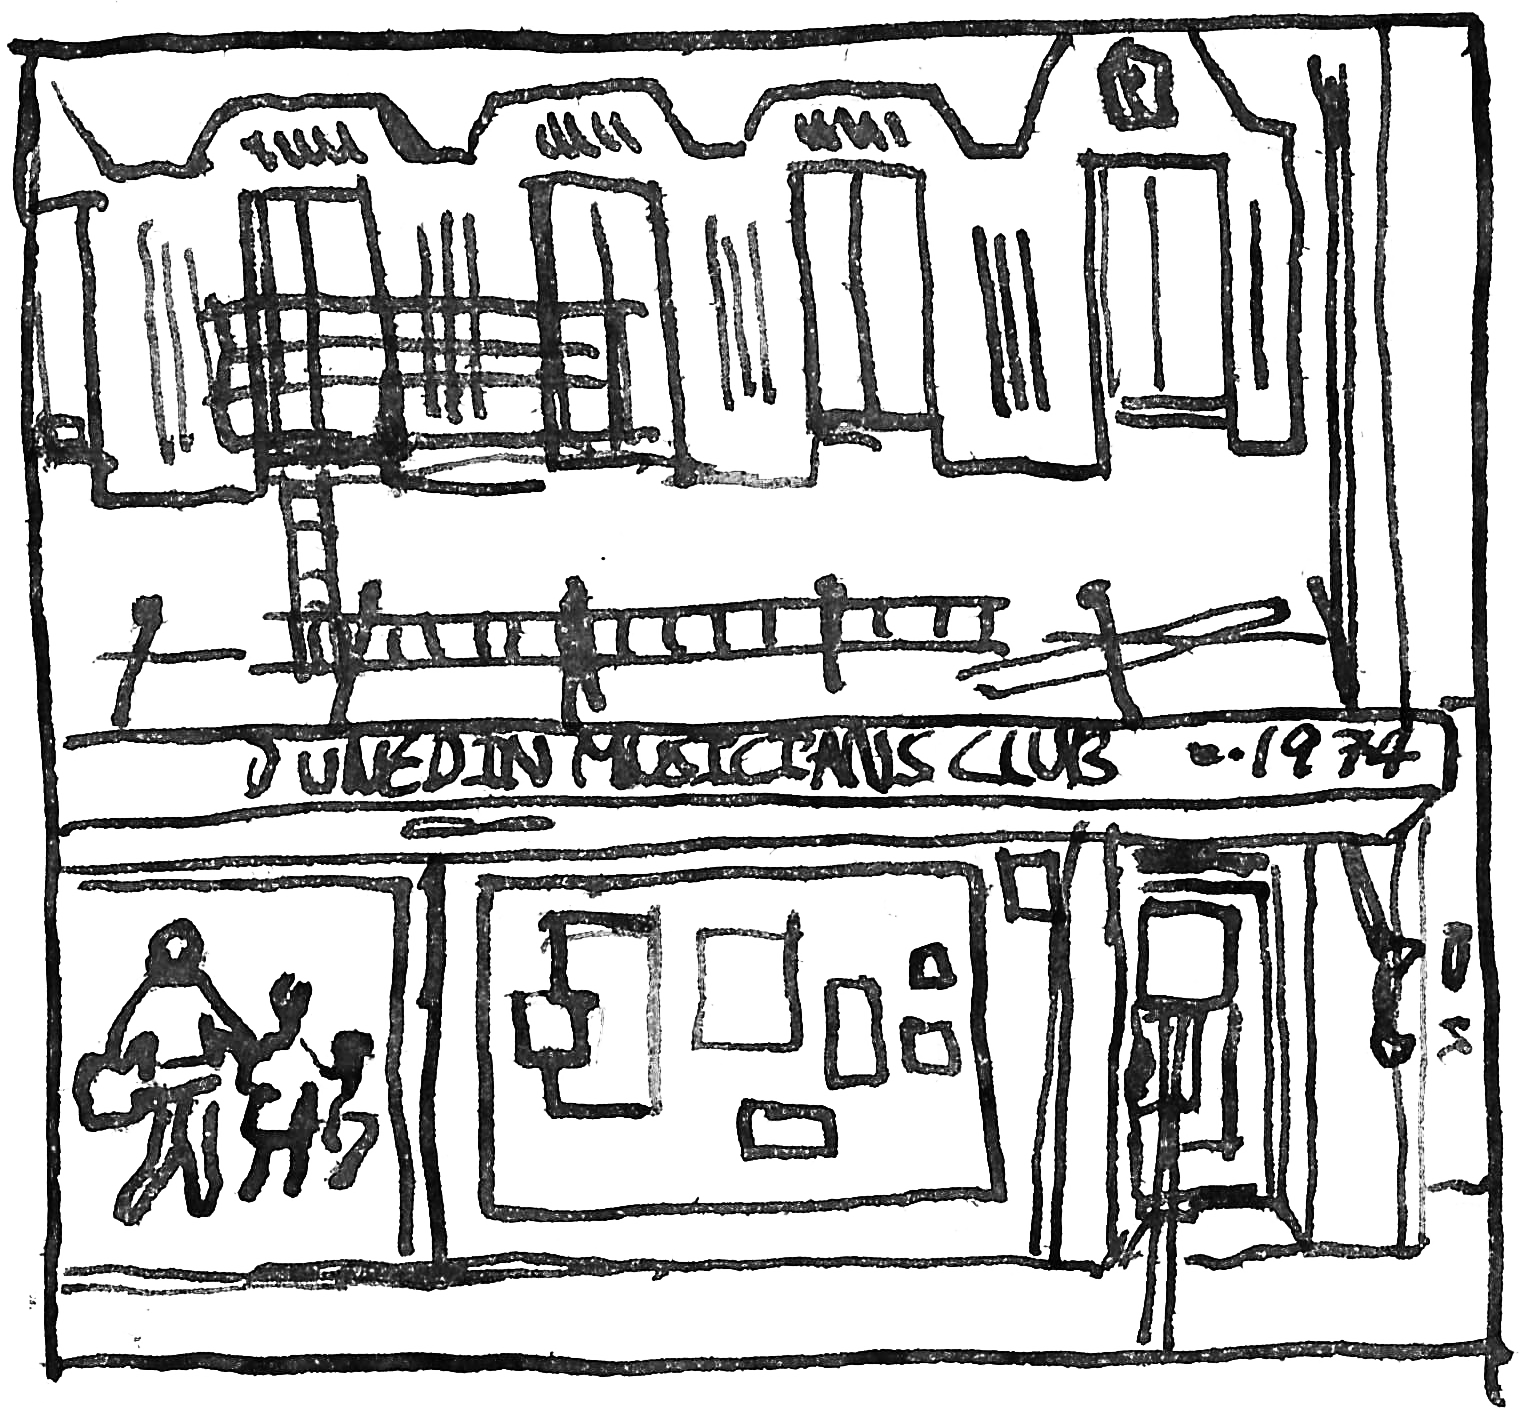 DUNEDIN MUSICIANS CLUB e.1974